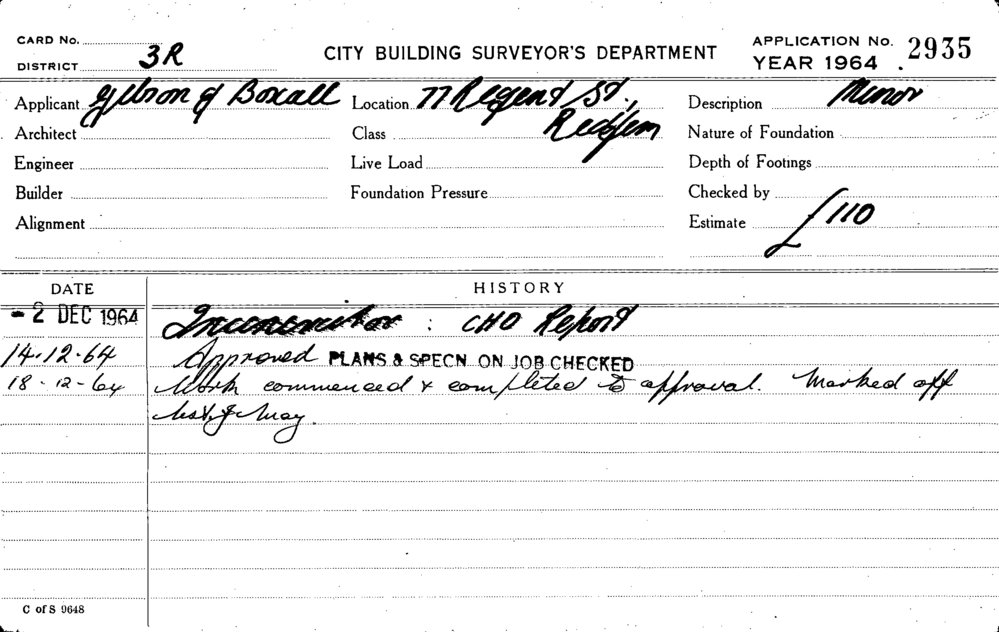 CARD No.
DISTRICT 3R
CITY BUILDING SURVEYOR'S DEPARTMENT
APPLICATION No. 2935
YEAR 1964
Applicant Gibson & Boxall Location 77 Regent St., Description Minor
Architect Class Redfern Nature of Foundation
Engineer Live Load Depth of Footings
Builder Foundation Pressure Checked by
Alignment Estimate £110
DATE HISTORY
- 2 DEC 1964 Incinerator : CHO Report
14.12.64 Approved PLANS & SPECN ON JOB CHECKED
18-12-64 Work commenced & completed to approval. Marked off
May.
C of S 9648